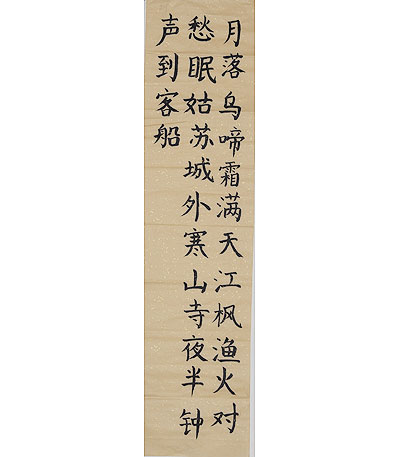 月落乌啼霜满天江枫渔火对
愁眠姑苏城外寒山寺夜半钟
声到客船